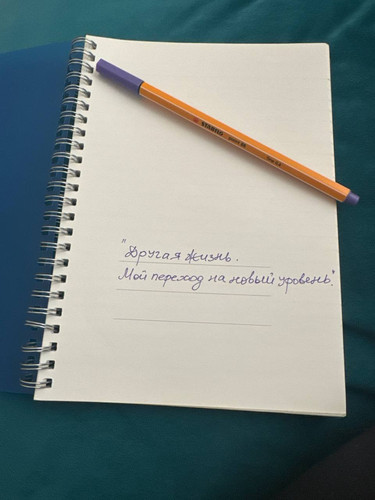 STABILO point 88
"Другая жизнь.
Мой переход на новый уровень."